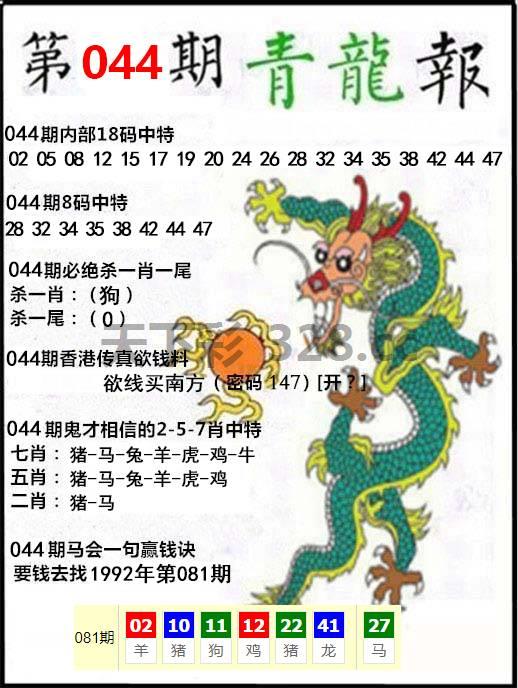 第044期 青龍報
044期内部18码中特
02 05 08 12 15 17 19 20 24 26 28 32 34 35 38 42 44 47
044期8码中特
28 32 34 35 38 42 44 47
044期必绝杀一肖一尾
杀一肖：（狗）
杀一尾：（0）
天下彩 1328.cc
044期香港传真欲钱料
欲线买南方（密码 147）[开？]
044期鬼才相信的2-5-7肖中特
七肖：猪-马-兔-羊-虎-鸡-牛
五肖：猪-马-兔-羊-虎-鸡
二肖：猪-马
044期马会一句赢钱诀
要钱去找1992年第081期
081期 02 10 11 12 22 41 27
羊 猪 狗 鸡 猪 龙 马